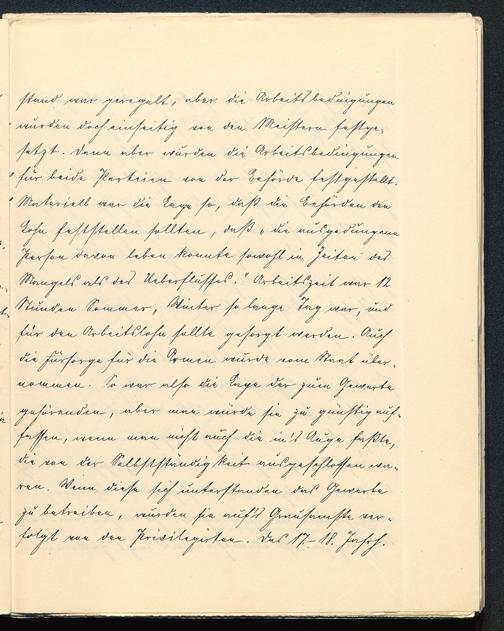 stand war geregelt, aber die Arbeitsbedingungen
wurden doch einseitig von den Meistern festge-
setzt. Dann aber wurden die Arbeitsbedingungen
für beide Parteien von der Behörde festgestellt.
Materiell war die Lage so, daß die Behörden den
Lohn feststellen sollten, daß „die ausgedungene
Person davon leben konnte sowohl in Zeiten des
Mangels als des Ueberflusses." Arbeitszeit war 12
Stunden Sommer, Winter so lange Tag war, und
für den Arbeitslohn sollte gesorgt werden. Auch
die Fürsorge für die Armen wurde vom Staat über-
nommen. So war also die Lage der zum Gewerbe
gehörenden, aber man würde sie zu günstig auf-
fassen, wenn man nicht auch die in's Auge faßte,
die von der Selbstständigkeit ausgeschlossen wa-
ren. Wenn diese sich unterstanden das Gewerbe
zu betreiben, wurden sie aufs Grausamste ver-
folgt von den Privilegirten. Das 17.-18. Jahrh.